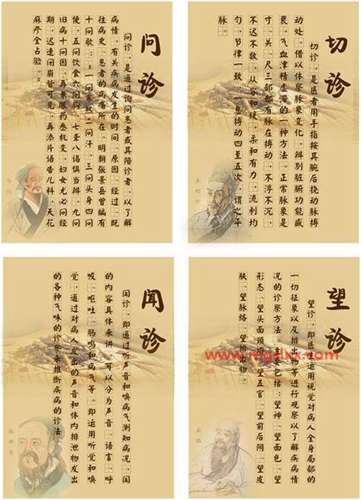 问诊
问诊，是通过询问患者或其陪诊者，以了解
病情，有关疾病发生的时间、原因、经过、既
往病史、患者的病痛所在，明朝张景岳曾编有
十问歌：一问寒热二问汗，三问头身四问
便，五问饮食六问胸，七聋八渴俱当辨，九问
旧病十问因，再兼服药参机变，妇女尤必问经
期，迟速闭崩皆可见，再添片语告儿科，天花
麻疹全占验。
切诊
切诊，是医者用手指按其腕后桡动脉搏
动处，借以体察脉象变化，辨别脏腑功能盛
衰，气血津虚滞的一种方法，正常脉象是
寸、关、尺三部都有脉在搏动，不浮不沉，
不迟不数，从容和缓，柔和有力，流利均
匀，节律一致，一息搏动四至五次，谓之平
脉。
闻诊
闻诊，即通过听声音和嗅病气测知病况，闻
的内容具体来讲，可以分为声音、语言、呼
吸、呕吐、肠鸣和病气等，即运用听觉和嗅
觉，通过对病人发出的声音和体内排泄物发出
的各种气味的诊察来推断疾病的诊法。
望诊
望诊，即医生运用视觉对病人全身局部的
一切征象以及排出物等进行观察以了解疾病情
况的诊察方法，主要包括：望神、望面色、望
形态、望头面颈项、望五官、望前后阴、望皮
肤、望脉络、望排出物。